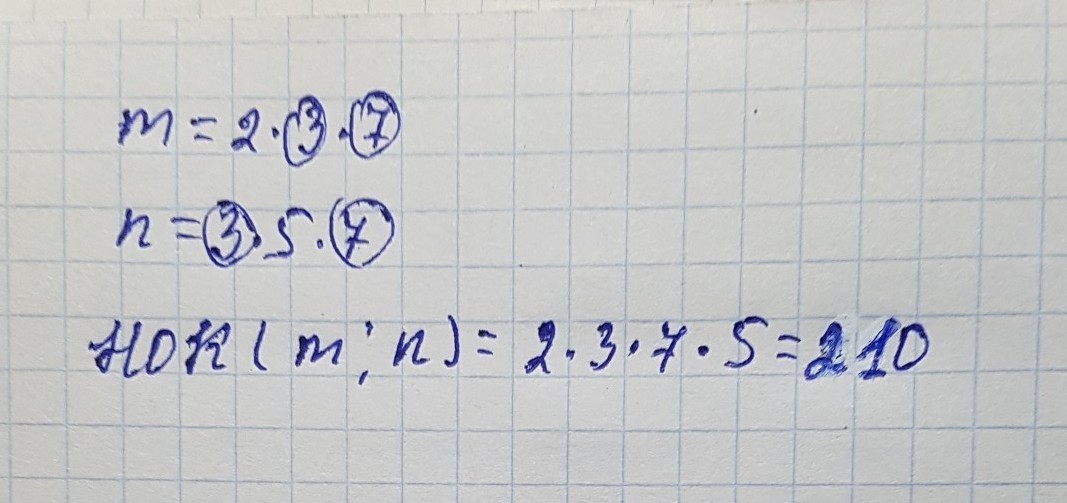 m = 2 · 3 · 7
n = 3 · 5 · 7
НОК ( m ; n ) = 2 · 3 · 7 · 5 = 210